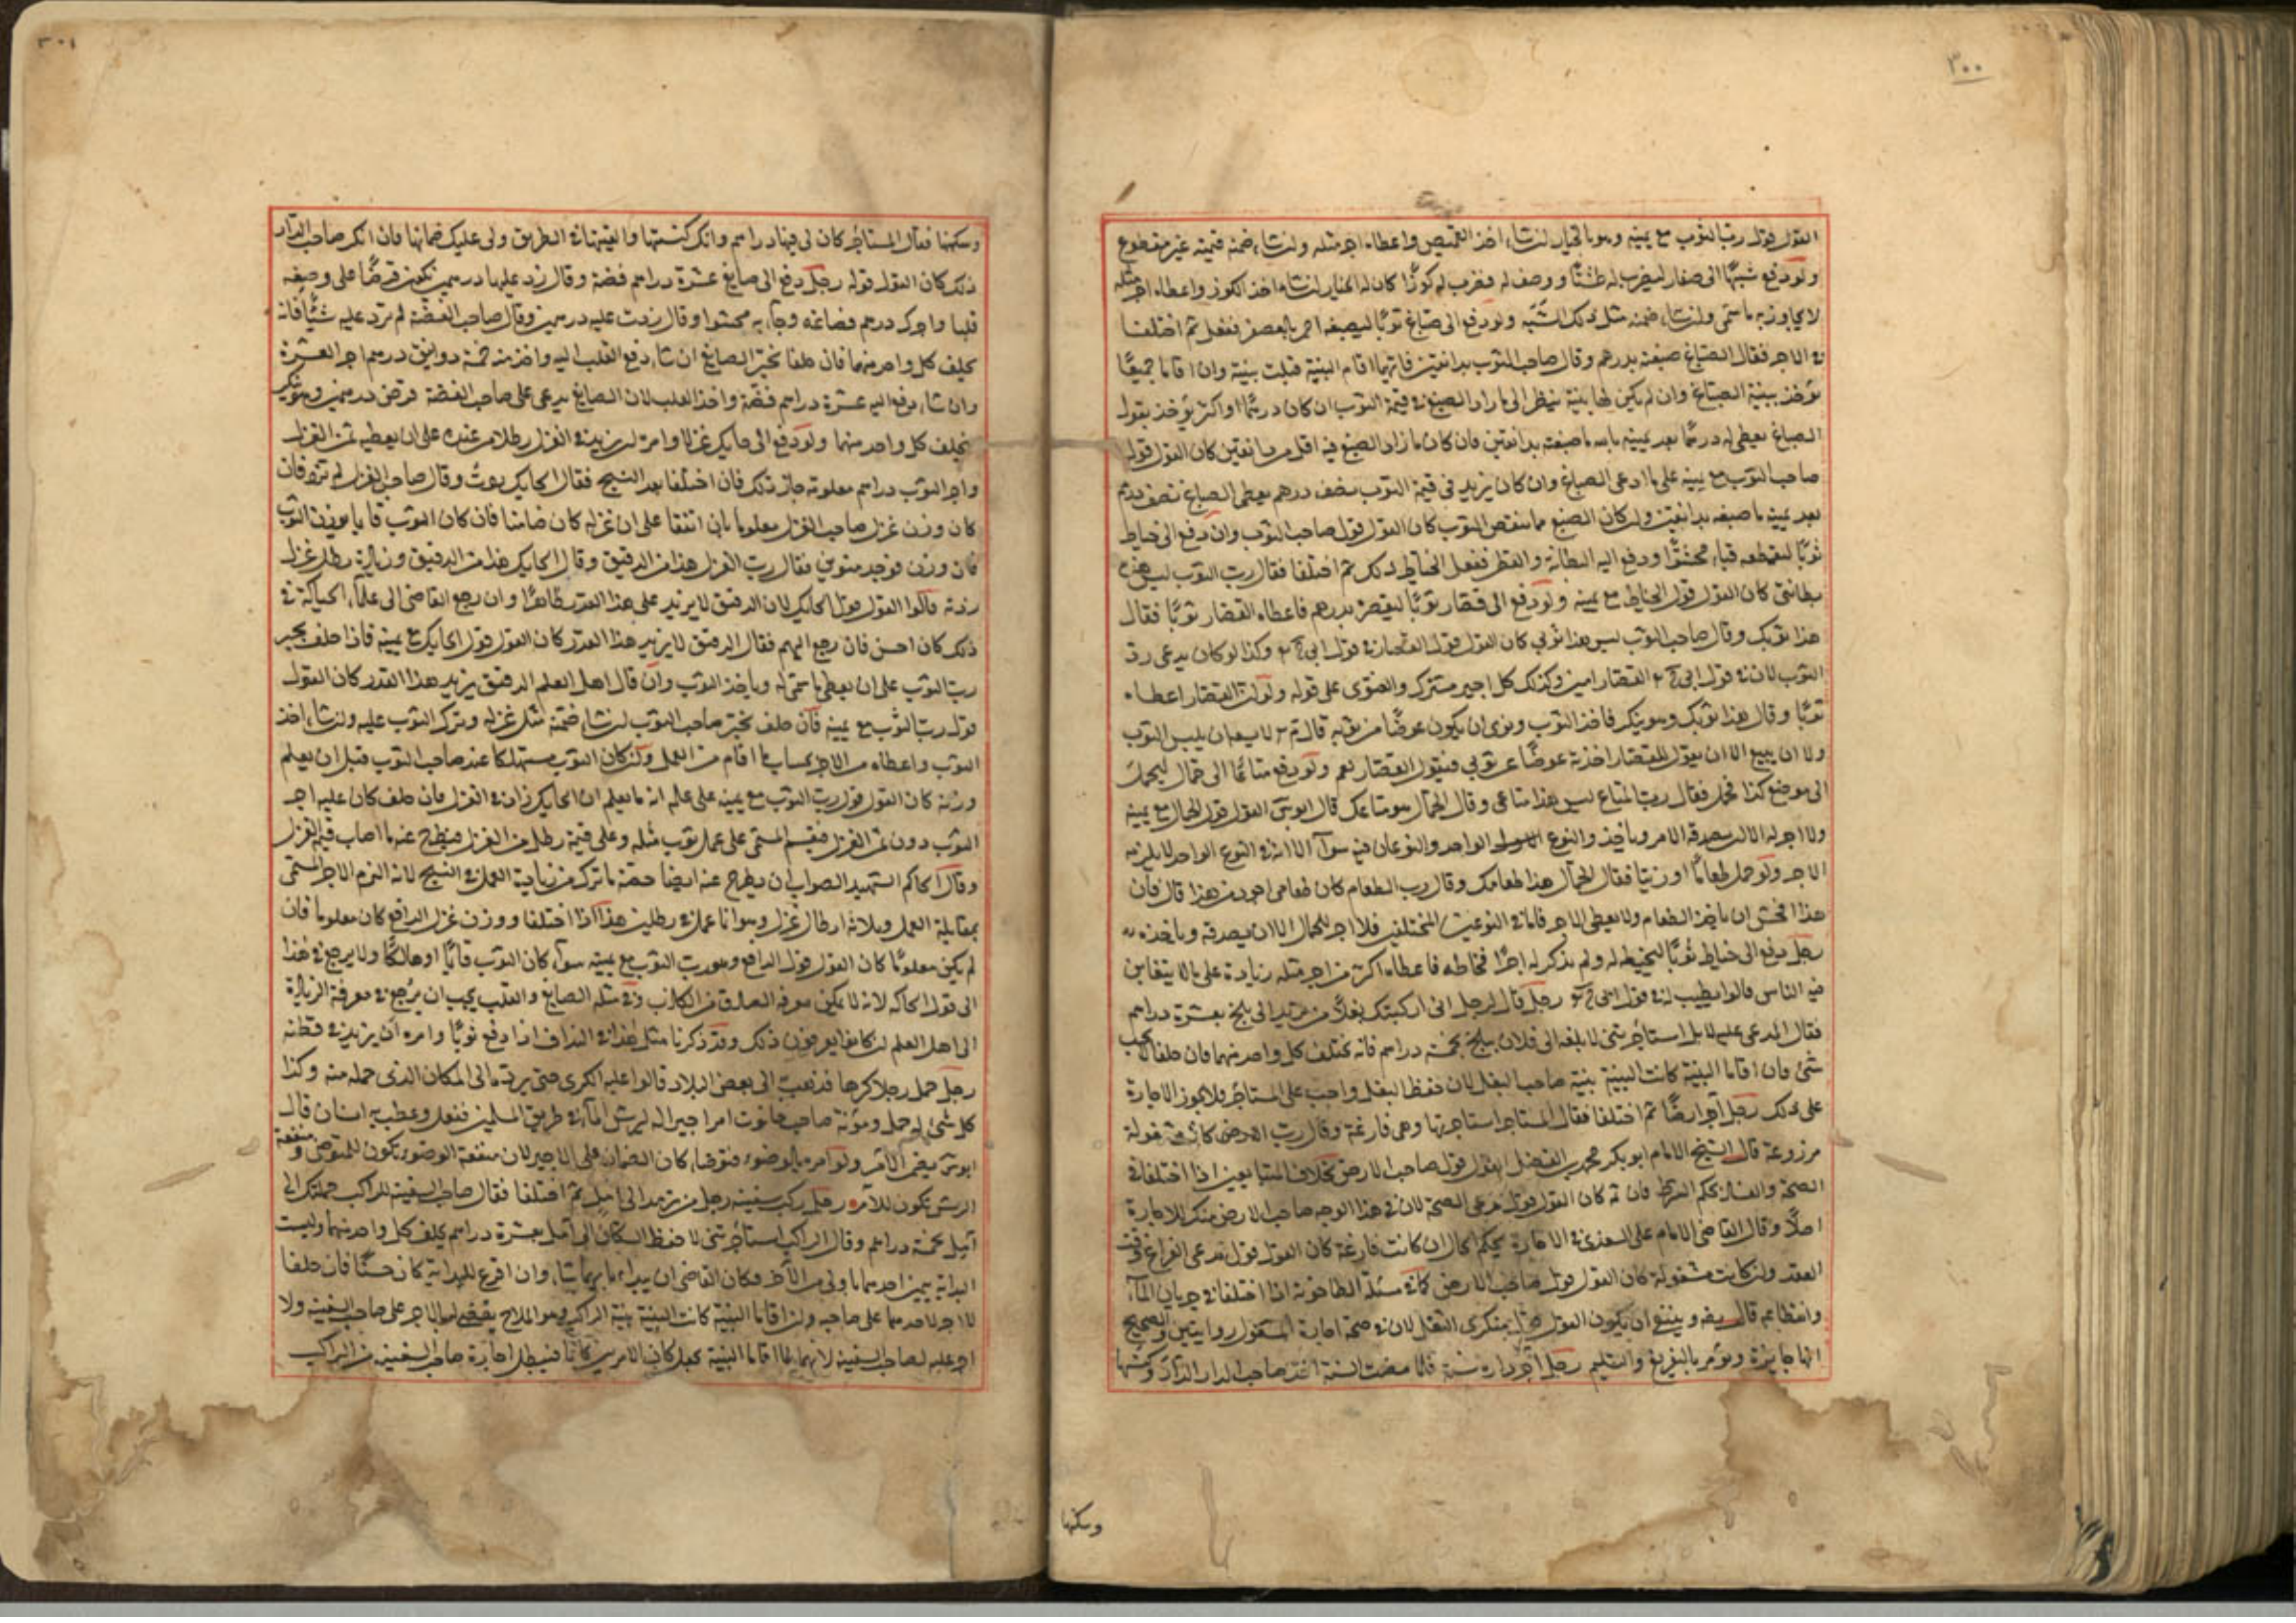 ٣٠٠
القول قول رب الثوب مع يمينه وهو بالخيار ان شاء اخذ القميص واعطاه اجر مثله وان شاء ضمنه قيمته غير مقطوع
ولو دفع شبها الى صفار ليضرب له طشتا ووصف له فضرب له كوزا كان له الخيار ان شاء اخذ الكوز واعطاه اجر مثله
لا يجاوز به ما سمى وان شاء ضمنه مثل ذلك الشبه ولو دفع الى صباغ ثوبا ليصبغه احمر بالعصفر ففعل ثم اختلفا
في الاجر فقال الصباغ صبغته بدرهم وقال صاحب الثوب بدانقين فايهما اقام البينة قبلت بينته وان اقاما جميعا
يؤخذ ببينة الصباغ وان لم يكن لهما بينة ينظر الى ما زاد الصبغ في قيمة الثوب ان كان درهما او اكثر يؤخذ بقول
الصباغ يعطى له درهما بعد يمينه بالله ما صبغته بدانقين فان كان ما زاد الصبغ فيه اقل من دانقين كان القول قول
صاحب الثوب مع يمينه على ما ادعى الصباغ وان كان يزيد في قيمة الثوب نصف درهم يعطى الصباغ نصف درهم
بعد يمينه ما صبغه بدانقين وان كان الصبغ مما ينقص الثوب كان القول قول صاحب الثوب وان دفع الى خياط
ثوبا ليقطعه قباء محشوا ودفع اليه البطانة والقطن ففعل الخياط ذلك ثم اختلفا فقال رب الثوب ليس هذه
بطانتي كان القول قول الخياط مع يمينه ولو دفع الى قصار ثوبا ليقصره بدرهم فاعطاه القصار ثوبا فقال
هذا ثوبك وقال صاحب الثوب ليس هذا ثوبي كان القول قول القصار في قول ابي ح وكذا لو كان يدعى رد
الثوب لان في قول ابي ح القصار امين وكذلك كل اجير مشترك والفتوى على قوله ولو ان القصار اعطاه
ثوبا وقال هذا ثوبك وهو ينكر فاخذ الثوب ونوى ان يكون عوضا من ثوبه قال م لا يسعه ان يلبس الثوب
ولا ان يبيع الا ان يقول للقصار اخذته عوضا عن ثوبي فيقول القصار نعم ولو دفع متاعا الى حمال ليحمله
الى موضع كذا فحمل فقال رب المتاع ليس هذا متاعي وقال الحمال هو متاعك قال ابو س القول قول الحمال مع يمينه
ولا اجر له الا ان يصدقه الامر وياخذ والنوع الواحد والنوعان فيه سواء الا ان في النوع الواحد لا يلزمه
الاجر ولو حمل طعاما او زيتا فقال الحمال هذا طعامك وقال رب الطعام كان طعامي اجود من هذا قال فان
هذا فحش ان ياخذ الطعام ولا يعطى الاجر فاما في النوعين المختلفين فلا اجر للحمال الا ان يصدقه وياخذه
رجل دفع الى خياط ثوبا ليخيطه له ولم يذكر له اجرا فخاطه فاعطاه اكثر من اجر مثله زيادة على ما لا يتغابن
فيه الناس قالوا يطيب له في قول ابي ح رجل قال لرجل اني اركبتك بغلا من ترمذ الى بلخ بعشرة دراهم
فقال المدعى عليه لا بل استاجرتني لابلغه الى فلان ببلخ بخمسة دراهم فانه يحلف كل واحد منهما فان حلفا لا يجب
شئ فان اقاما البينة كانت البينة بينة صاحب البغل لان حفظ البغل واجب على المستاجر فلا يجوز الاجارة
على ذلك رجل آجر ارضا ثم اختلفا فقال المستاجر استاجرتها وهي فارغة وقال رب الارض كانت مشغولة
مزروعة قال الشيخ الامام ابو بكر محمد بن الفضل القول قول صاحب الارض بخلاف المتبايعين اذا اختلفا في
الصحة والفساد بحكم الشرط فان ثم كان القول قول مدعى الصحة لان في هذا الوجه صاحب الارض منكر للاجارة
اصلا وقال القاضي الامام على السغدي في الاجارة يحكم الحال ان كانت فارغة كان القول قول مدعى الفراغ وقت
العقد وان كانت مشغولة كان القول قول صاحب الارض كما في مسئلة الطاحونة اذا اختلفا في جريان الماء
وانقطاعه قال رضه وينبغي ان يكون القول قول منكرى الشغل لان في صحة اجارة المشغول روايتين والصحيح
انها جائزة ويؤمر بالتفريغ والتسليم رجل آجر داره سنة فلما مضت السنة اخذ صاحب الدار الدار وكنسها
وسكنها
٣٠١
وسكنها فقال المستاجر كان لي فيها دراهم وانك كنستها والقيتها في الطريق ولى عليك ضمانها فان انكر صاحب الدار
ذلك كان القول قوله رجل دفع الى صايغ عشرة دراهم فضة وقال زد عليها درهمين يكون قرضا على وصغه
قلبا واجرك درهم فصاغه وجاء به محشوا وقال زدت عليه درهمين وقال صاحب الفضة لم تزد عليه شيئا فانه
يحلف كل واحد منهما فان حلفا يخير الصايغ ان شاء دفع القلب اليه واخذ منه خمسة دوانيق درهم اجر العشرة
وان شاء دفع اليه عشرة دراهم فضة واخذ القلب لان الصايغ يدعى على صاحب الفضة قرض درهمين وهو ينكر
فيحلف كل واحد منهما ولو دفع الى حايك غزلا وامره ان يزيد في الغزل رطلا من عنده على ان يعطيه ثمن الغزل
واجر الثوب دراهم معلومة جاز ذلك فان اختلفا بعد النسج فقال الحايك زدت وقال صاحب الغزل لم تزد فان
كان وزن غزل صاحب الغزل معلوما بان اتفقا على ان غزله كان منا فان كان الثوب قايما يوزن الثوب
فان وزن فوجد منوين فقال رب الغزل هذا من الدقيق وقال الحايك هذا من الدقيق وزيادة رطل غزل
زدته قالوا القول قول الحايك لان الدقيق لا يزيد على هذا القدر ظاهرا وان رجع القاضي الى علماء الحياكة في
ذلك كان احسن فان رجع اليهم فقال الدقيق لا يزيد هذا القدر كان القول قول الحايك مع يمينه فاذا حلف يجبر
رب الثوب على ان يعطى ما سمى له وياخذ الثوب وان قال اهل العلم الدقيق يزيد هذا القدر كان القول
قول رب الثوب مع يمينه فان حلف يخير صاحب الثوب ان شاء ضمنه مثل غزله وترك الثوب عليه وان شاء اخذ
الثوب واعطاه من الاجر بحساب ما اقام من العمل ولو كان الثوب مستهلكا عند صاحب الثوب قبل ان يعلم
وزنه كان القول قول رب الثوب مع يمينه على علمه انه ما يعلم ان الحايك زاد في الغزل فان حلف كان عليه اجر
الثوب دون ثمن الغزل فيقسم المسمى على عمل ثوب مثله وعلى قيمة رطل من الغزل فيطرح عنه ما اصاب قيمة الغزل
وقال الحاكم الشهيد الصواب ان يطرح عنه ايضا حصة ما ترك من زيادة العمل في النسج لانه التزم الاجر المسمى
بمقابلة العمل وبثلاثة ارطال غزل وهو انما عمل في رطلين هذا اذا اختلفا ووزن غزل الدافع كان معلوما فان
لم يكن معلوما كان القول قول الدافع وهو رب الثوب مع يمينه سواء كان الثوب قايما او هالكا ولا يرجع في هذا
الى قول الحاكة لانه لا يمكن معرفة الصادق من الكاذب وفي مسئلة الصايغ والقلب يجب ان يرجع في معرفة الزيادة
الى اهل العلم ان كانوا يعرفون ذلك وقد ذكرنا مثل هذا في النداف اذا دفع ثوبا وامره ان يزيد في قطنه
رجل حمل رجلا كرها فذهب الى بعض البلاد قالوا عليه الكرى حتى يرده الى المكان الذي حمله منه وكذا
كل شئ له حمل ومؤنة صاحب حانوت امر اجيرا له ليرش الماء في طريق المسلمين ففعل وعطب به انسان قال
ابو س يضمن الآمر ولو امره بالوضوء فتوضا كان الضمان على الاجير لان منفعة الوضوء تكون للمتوضي ومنفعة
الرش تكون للآمر رجل ركب سفينة رجل من ترمذ الى آمل ثم اختلفا فقال صاحب السفينة للراكب حملتك الى
آمل بخمسة دراهم وقال الراكب استاجرتني لاحفظ السكان الى آمل بعشرة دراهم يحلف كل واحد منهما وليست
البداية بيمين احدهما باولى من الآخر فكان القاضي ان يبداء بايهما شاء وان اقرع للبداية كان حسنا فان حلفا
لا اجر لاحدهما على صاحبه وان اقاما البينة كانت البينة بينة الراكب وهو الملاح يقضى له بالاجر على صاحب السفينة ولا
اجر عليه لصاحب السفينة لانهما لما اقاما البينة يجعل كان الامرين كانا فيبطل اجارة صاحب السفينة من الراكب